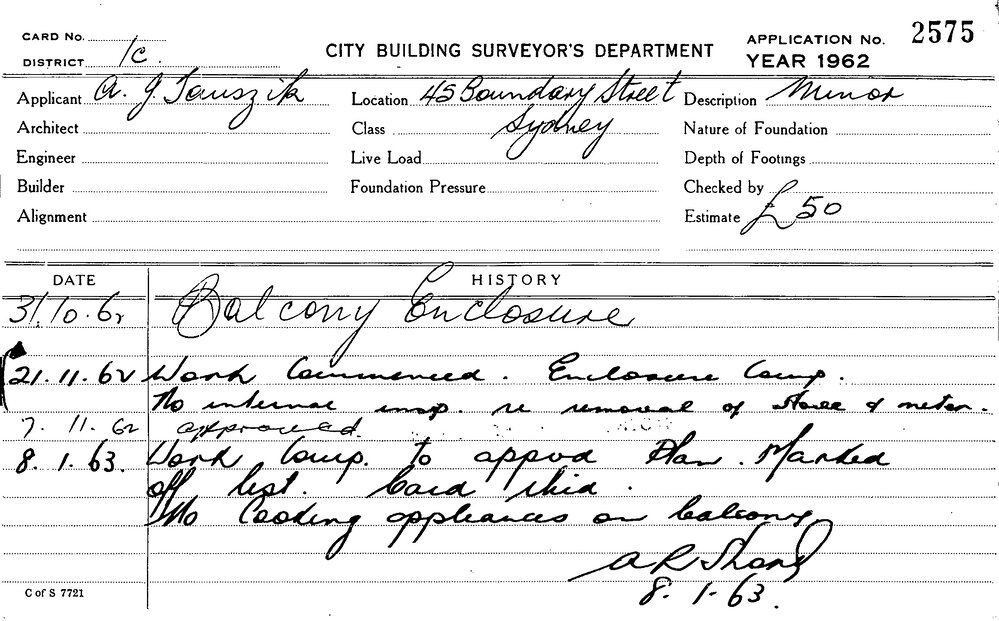 CARD No.
DISTRICT 1c.
CITY BUILDING SURVEYOR'S DEPARTMENT
APPLICATION No. 2575
YEAR 1962
Applicant A. J Tauszik
Location 45 Boundary Street
Sydney
Description Minor
Architect
Class
Nature of Foundation
Engineer
Live Load
Depth of Footings
Builder
Foundation Pressure
Checked by
Alignment
Estimate £50
DATE
HISTORY
31.10.62 Balcony Enclosure
21.11.62 Work Commenced. Enclosure Comp.
No internal insp. re removal of stove & meter.
7. 11. 62 approved.
8. 1. 63. Work Comp. to appvd Plan. Marked
off list. Card
No Cooking appliances on balcony
A R Shand
8. 1. 63.
C of S 7721